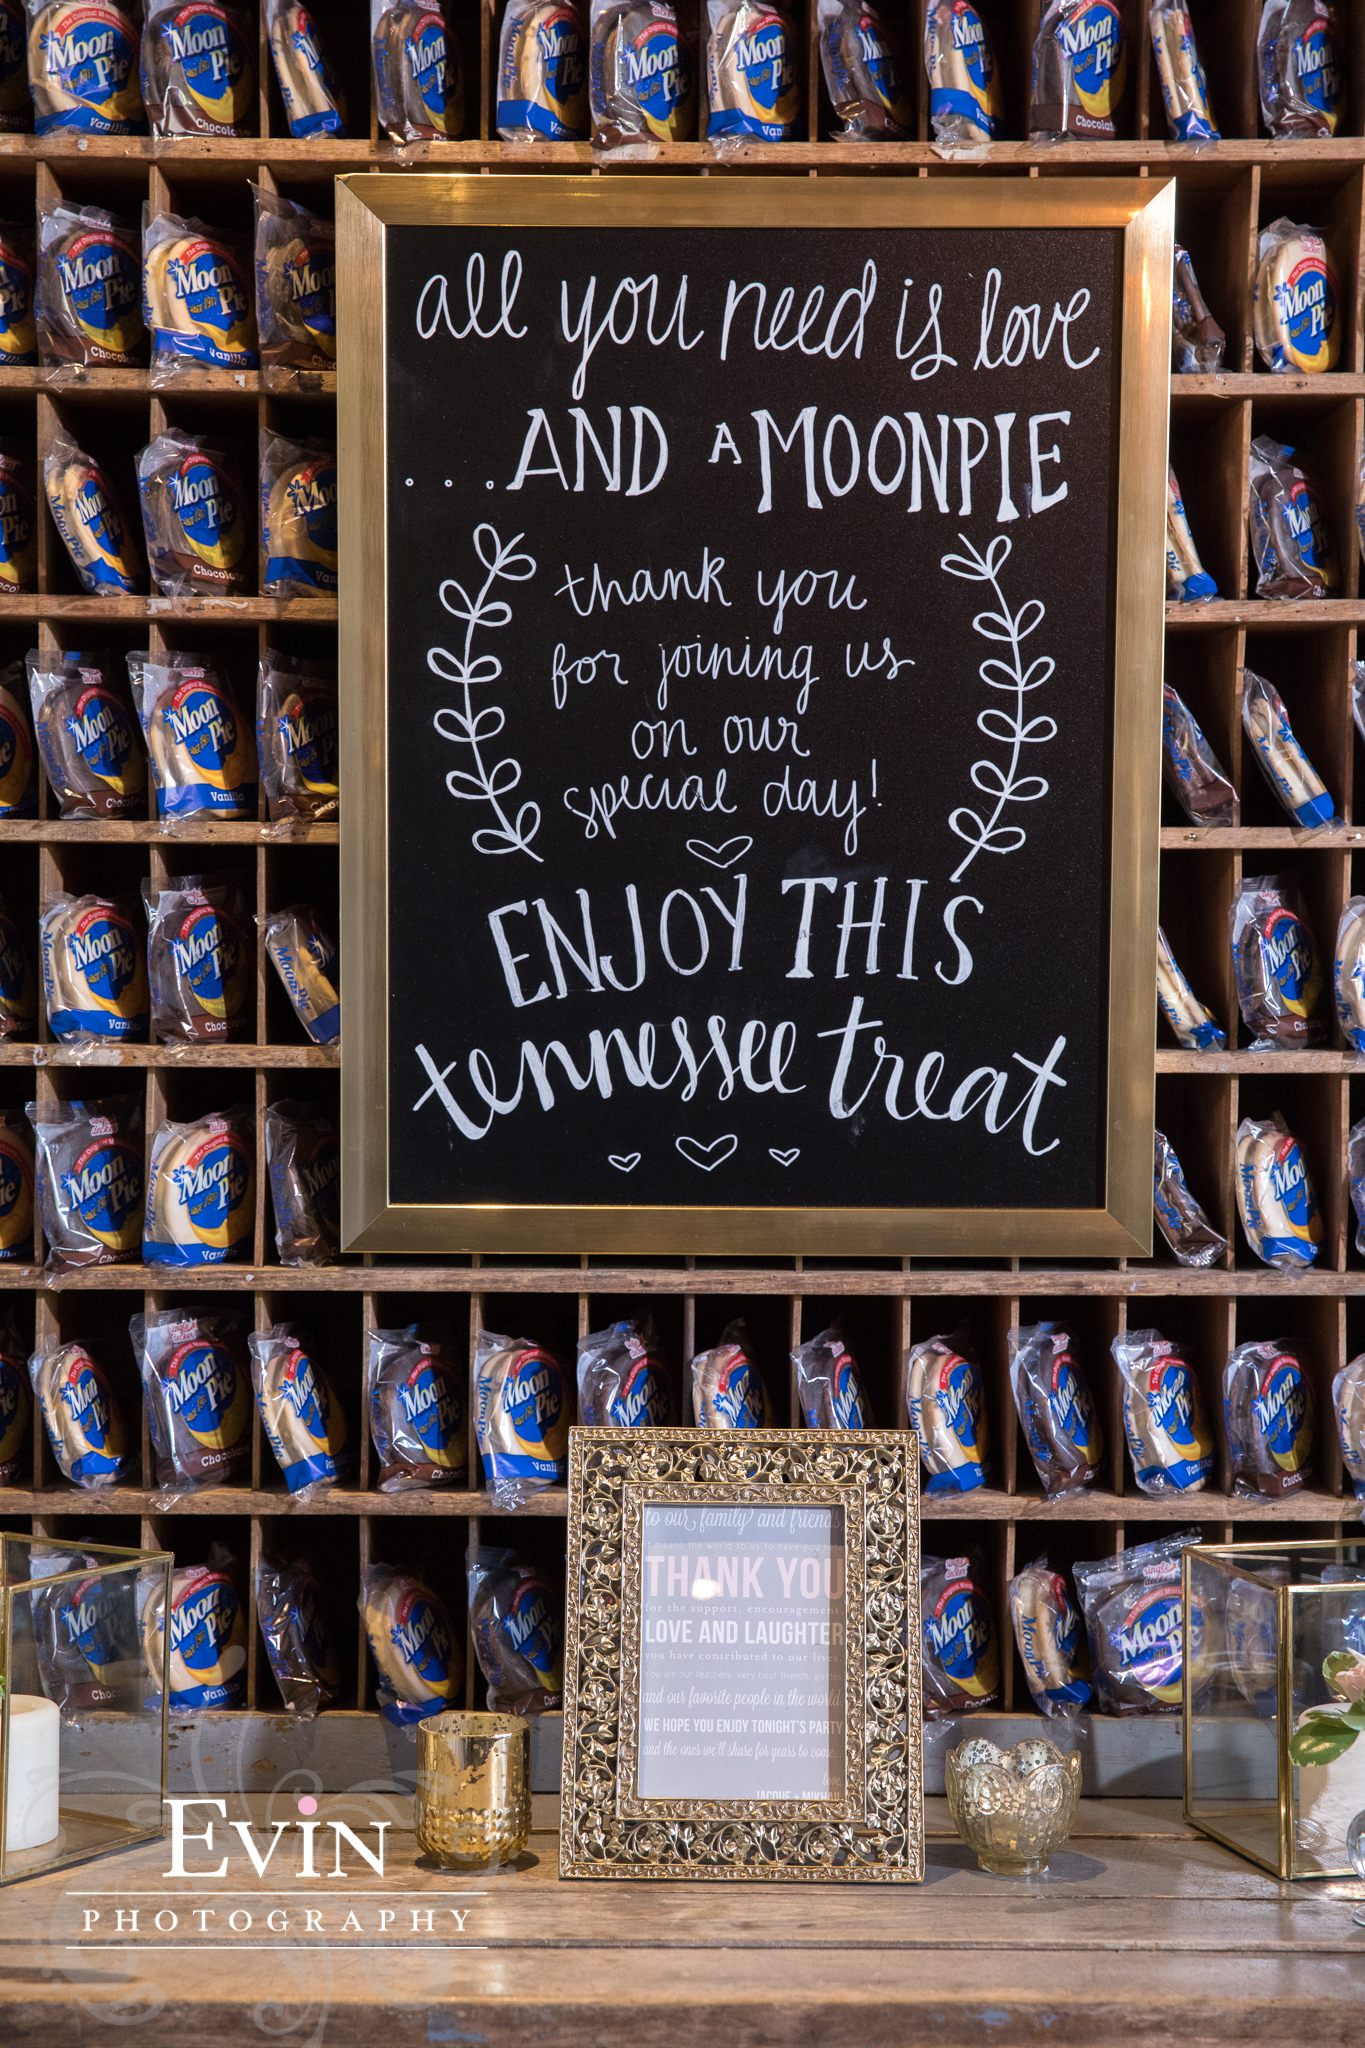 all you need is love
....AND A MOONPIE
thank you
for joining us
on our
special day!
ENJOY THIS
tennessee treat
to our family and friends
it means the world to us to have you here
THANK YOU
for the support, encouragement,
LOVE AND LAUGHTER
you have contributed to our lives.
You are our teachers, very best friends,
and our favorite people in the world.
WE HOPE YOU ENJOY TONIGHT'S PARTY
and the ones we'll share for years to come...
love,
EVIN
PHOTOGRAPHY
The Original Marshmallow
Moon Pie
since 1917
Vanilla
Chocolate
single decker